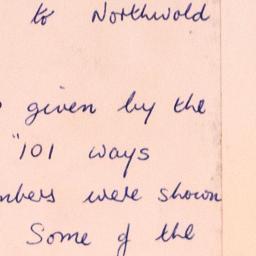 to Northwold
given by the
"101 ways
mbers were shown
Some of the